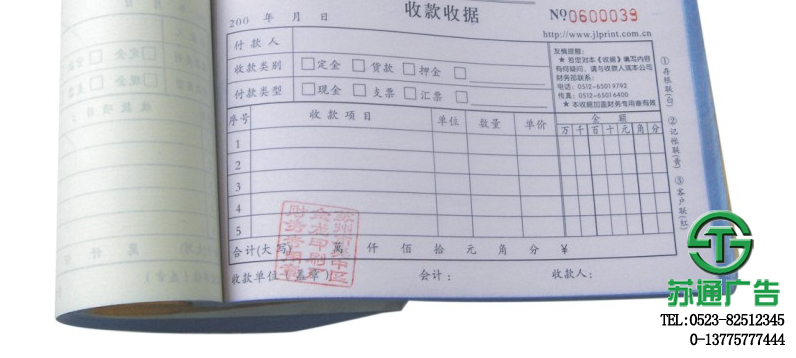 收款收据
200 年 月 日
№0600039
http://www.jlprint.com.cn
付款人
收款类别 □定金 □货款 □押金 □
付款类型 □现金 □支票 □汇票 □
友情提醒:
★ 若您对本《收据》填写内容
有何疑问,请与收款人或本公司
财务部联系:
电话:0512-65019792
传真:0512-65016400
★ 本收据加盖财务专用章有效
序号 收款项目 单位 数量 单价 金额
万 千 百 十 元 角 分
1
2
3
4
5
合计(大写) 萬 仟 佰 拾 元 角 分 ¥
收款单位(盖章) 会计: 收款人:
①存根联(白)
②记帐联(黄)
③客户联(红)
苏通广告
TEL:0523-82512345
0-13775777444